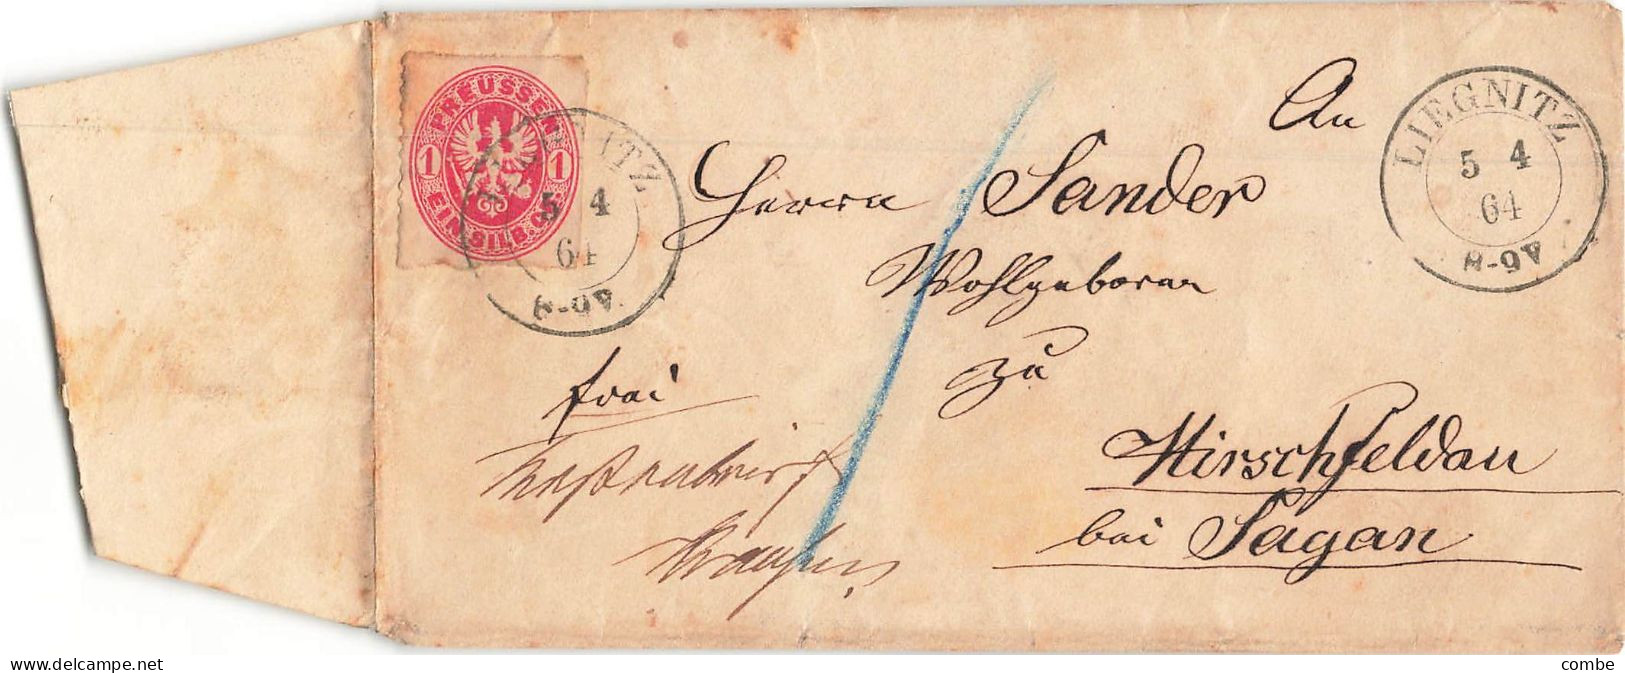 PREUSSEN
1 1
EIN SILB.GR.
LIEGNITZ
5 4
64
8-9V.
LIEGNITZ
5 4
64
8-9V
An
Herrn Sander
Wohlgeboren
zu
Hirschfeldau
bei Sagan
frei
delcampe.net
combe